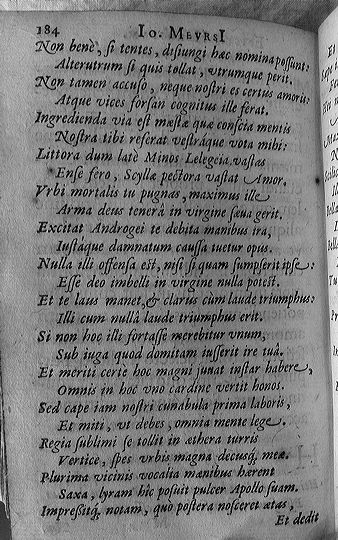 184 Io. MevrsI
Non benè, si tentes, disiungi hæc nomina possunt:
Alterutrum si quis tollat, vtrumque perit.
Non tamen accuso, neque nostri es certus amoris:
Atque vices forsan cognitus ille ferat.
Ingredienda via est mæstæ quæ conscia mentis
Nostra tibi referat vestráque vota mihi:
Littora dum latè Minos Lelegeia vastas
Ense fero, Scyllæ pectora vastat Amor.
Vrbi mortalis tu pugnas, maximus ille
Arma deus tenerâ in virgine sæua gerit.
Excitat Androgei te debita manibus ira,
Iustáque damnatum caussa tuetur opus.
Nulla illi offensa est, nisi si quam sumpserit ipse:
Esse deo imbelli in virgine nulla potest.
Et te laus manet, & clarius cum laude triumphus:
Illi cum nullâ laude triumphus erit.
Si non hoc illi fortasse merebitur vnum,
Sub iuga quod domitam iusserit ire tuâ.
Et meriti certe hoc magni iuuat instar habere,
Omnis in hoc vno cardine vertit honos.
Sed cape iam nostri cunabula prima laboris,
Et miti, vt debes, omnia mente lege.
Regia sublimi se tollit in æthera turris
Vertice, spes vrbis magna decusq́; meæ.
Plurima vicinis vocalia mænibus hærent
Saxa, lyram hîc posuit pulcer Apollo suam.
Impreßitq́; notam, quo postera nosceret ætas,
Et dedit